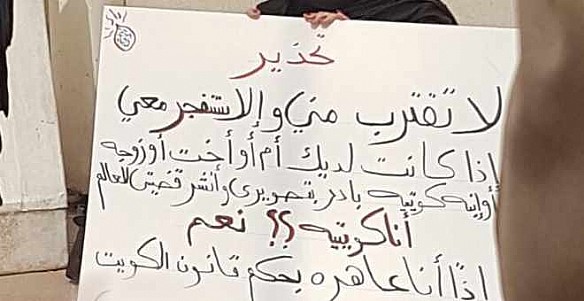 تحذير
لا تقترب مني وإلا ستنفجر معي
إذا كانت لديك أم أو أخت أو زوجه
أو إبنه كويتيه بادر بتصويري وأنشر قضيتي للعالم
أنا كويتيه ؟؟ نعم
إذاً أنا عاهره بحكم قانون الكويت